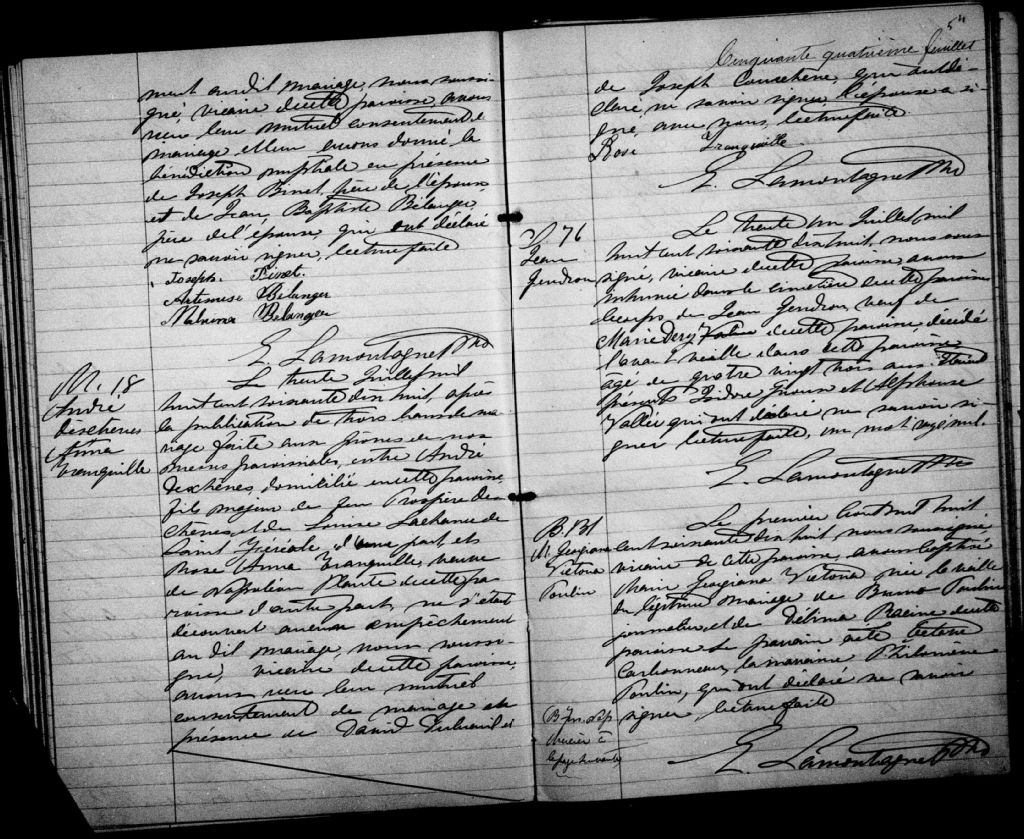 ment au dit mariage, nous soussi-
gné, vicaire de cette paroisse, avons
reçu leur mutuel consentement de
mariage et leur avons donné la
bénédiction nuptiale en présence
de Joseph Binet, père de l'époux
et de Jean Baptiste Bélanger,
père de l'épouse, qui ont déclaré
ne savoir signer, lecture faite
Joseph Binet
Artémise Bélanger
Malvina Bélanger
E. Lamontagne Ptre
M. 18
André
Deschènes
Anna
Tranquille
Le trente Juillet mil
huit cent soixante dix huit, après
la publication de trois bans de ma-
riage faite aux prônes de nos
messes paroissiales, entre André
Deschènes, domicilié en cette paroisse,
fils majeur de feu Prospère Des-
chènes, et de Louise Lachance de
Saint d'une part et
Rose Anna Tranquille, veuve
de Napoléon Plante de cette pa-
roisse d'autre part, ne s'étant
découvert aucun empêchement
au dit mariage, nous soussi-
gné, vicaire de cette paroisse,
avons reçu leur mutuel
consentement de mariage en
présence de David Dubreuil et
54
Cinquante quatrième feuillet
de Joseph Courchene, qui ont dé-
claré ne savoir signer. L'épouse a si-
gné, avec nous, lecture faite
Rose Tranquille
E. Lamontagne Ptre
S. 76
Jean
Gendron
Le trente un Juillet mil
huit cent soixante dix huit, nous sous-
signé, vicaire de cette paroisse, avons
inhumé dans le cimetière de cette paroisse
le corps de Jean Gendron, veuf de
Marie de cette paroisse, décédé
l'avant veille dans cette paroisse
agé de quatre vingt trois ans. Etaient
présents Isidore et Alphonse
Vallée qui ont déclaré ne savoir si-
gner lecture faite, un mot rayé nul.
E. Lamontagne Ptre
B. 131
M. Georgiana
Victoria
Poulin
Le premier Août mil huit
cent soixante dix huit nous soussigné,
vicaire de cette paroisse, avons baptisé
Marie Georgiana Victoria née la veille
du légitime mariage de Bruno Poulin
journalier, et de Délima Racine de cette
paroisse. Le parrain a été
Carbonneau, la marraine Philomène
Poulin, qui ont déclaré ne savoir
signer, lecture faite
E. Lamontagne Ptre
à
la page suivante